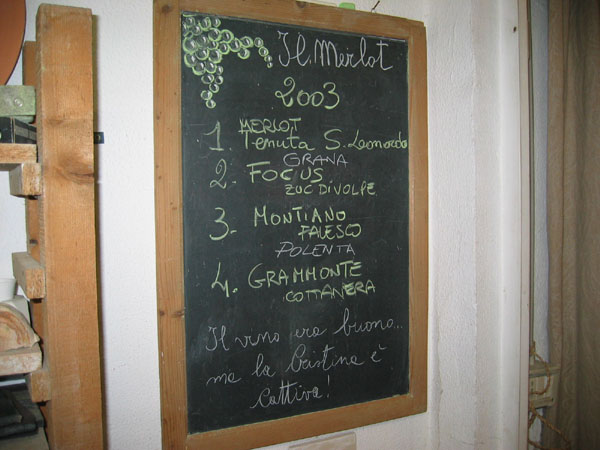 Il Merlot
2003
1. MERLOT
Tenuta S. Leonardo
GRANA
2. FOCUS
ZUC DI VOLPE
3- MONTIANO
FALESCO
POLENTA
4. GRAMMONTE
COTTANERA
Il vino era buono...
ma la Cristina è
cattiva!